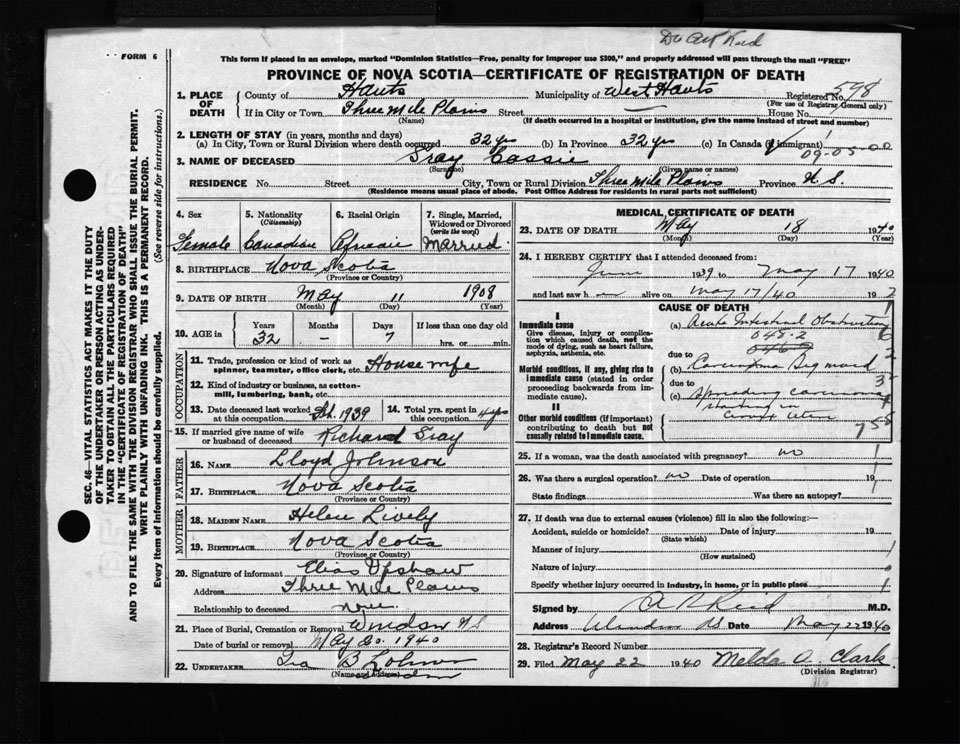 Dr Reid
FORM 6
This form if placed in an envelope, marked "Dominion Statistics—Free, penalty for improper use $300," and properly addressed will pass through the mail "FREE"
PROVINCE OF NOVA SCOTIA—CERTIFICATE OF REGISTRATION OF DEATH
1. PLACE OF DEATH County of Hants Municipality of West Hants Registered No. 598
(For use of Registrar General only)
If in City or Town Three Mile Plains Street — House No.
(Name) (If death occurred in a hospital or institution, give the name instead of street and number)
2. LENGTH OF STAY (in years, months and days)
(a) In City, Town or Rural Division where death occurred 32 yrs (b) In Province 32 yrs (c) In Canada (if immigrant)
09-05-00
3. NAME OF DECEASED Gray Cassie
(Surname) (Given name or names)
RESIDENCE No. Street City, Town or Rural Division Three Mile Plains Province N.S.
(Residence means usual place of abode. Post Office Address for residents in rural parts not sufficient)
SEC. 46—VITAL STATISTICS ACT MAKES IT THE DUTY
OF THE UNDERTAKER OR PERSON ACTING AS UNDER-
TAKER TO OBTAIN ALL THE PARTICULARS REQUIRED
IN THE "CERTIFICATE OF REGISTRATION OF DEATH"
AND TO FILE THE SAME WITH THE DIVISION REGISTRAR WHO SHALL ISSUE THE BURIAL PERMIT.
WRITE PLAINLY WITH UNFADING INK. THIS IS A PERMANENT RECORD.
Every item of Information should be carefully supplied. (See reverse side for instructions.)
4. Sex Female
5. Nationality (Citizenship) Canadian
6. Racial Origin
7. Single, Married, Widowed or Divorced (write the word) Married
8. BIRTHPLACE Nova Scotia
(Province or Country)
9. DATE OF BIRTH May 11 1908
(Month) (Day) (Year)
10. AGE in Years 32 Months – Days 7 If less than one day old hrs. or min.
OCCUPATION
11. Trade, profession or kind of work as spinner, teamster, office clerk, etc. House wife
12. Kind of industry or business, as cotton-mill, lumbering, bank, etc.
13. Date deceased last worked at this occupation Feb. 1939
14. Total yrs. spent in this occupation 4 yrs
15. If married give name of wife or husband of deceased Richard Gray
FATHER
16. NAME Lloyd Johnson
17. BIRTHPLACE Nova Scotia
(Province or Country)
MOTHER
18. MAIDEN NAME Helen Lively
19. BIRTHPLACE Nova Scotia
(Province or Country)
20. Signature of informant Elias Upshaw
Address Three Mile Plains
Relationship to deceased none.
21. Place of Burial, Cremation or Removal Windsor N S
Date of burial or removal May 20. 1940
22. UNDERTAKER Ira B
(Name and Address)
MEDICAL CERTIFICATE OF DEATH
23. DATE OF DEATH May 18 1940
(Month) (Day) (Year)
24. I HEREBY CERTIFY that I attended deceased from:
June 1939 to May 17 1940
and last saw h alive on May 17/40 19
CAUSE OF DEATH
I
Immediate cause
Give disease, injury or complication which caused death, not the mode of dying, such as heart failure, asphyxia, asthenia, etc.
(a) Acute Intestinal Obstruction
048-2
due to
Morbid conditions, if any, giving rise to immediate cause (stated in order proceeding backwards from immediate cause).
(b) Carcinoma Sigmoid
due to
(c) Spreading carcinoma
starting
II
Other morbid conditions (if important) contributing to death but not causally related to Immediate cause.
25. If a woman, was the death associated with pregnancy? no
26. Was there a surgical operation? no Date of operation 19
State findings Was there an autopsy?
27. If death was due to external causes (violence) fill in also the following:—
Accident, suicide or homicide? Date of injury 19
(State which)
Manner of injury
(How sustained)
Nature of injury
Specify whether injury occurred in industry, in home, or in public place
Signed by A R Reid M.D.
Address Windsor NS Date May 22 1940
28. Registrar's Record Number
29. Filed May 22 1940 Melda O. Clark
(Division Registrar)